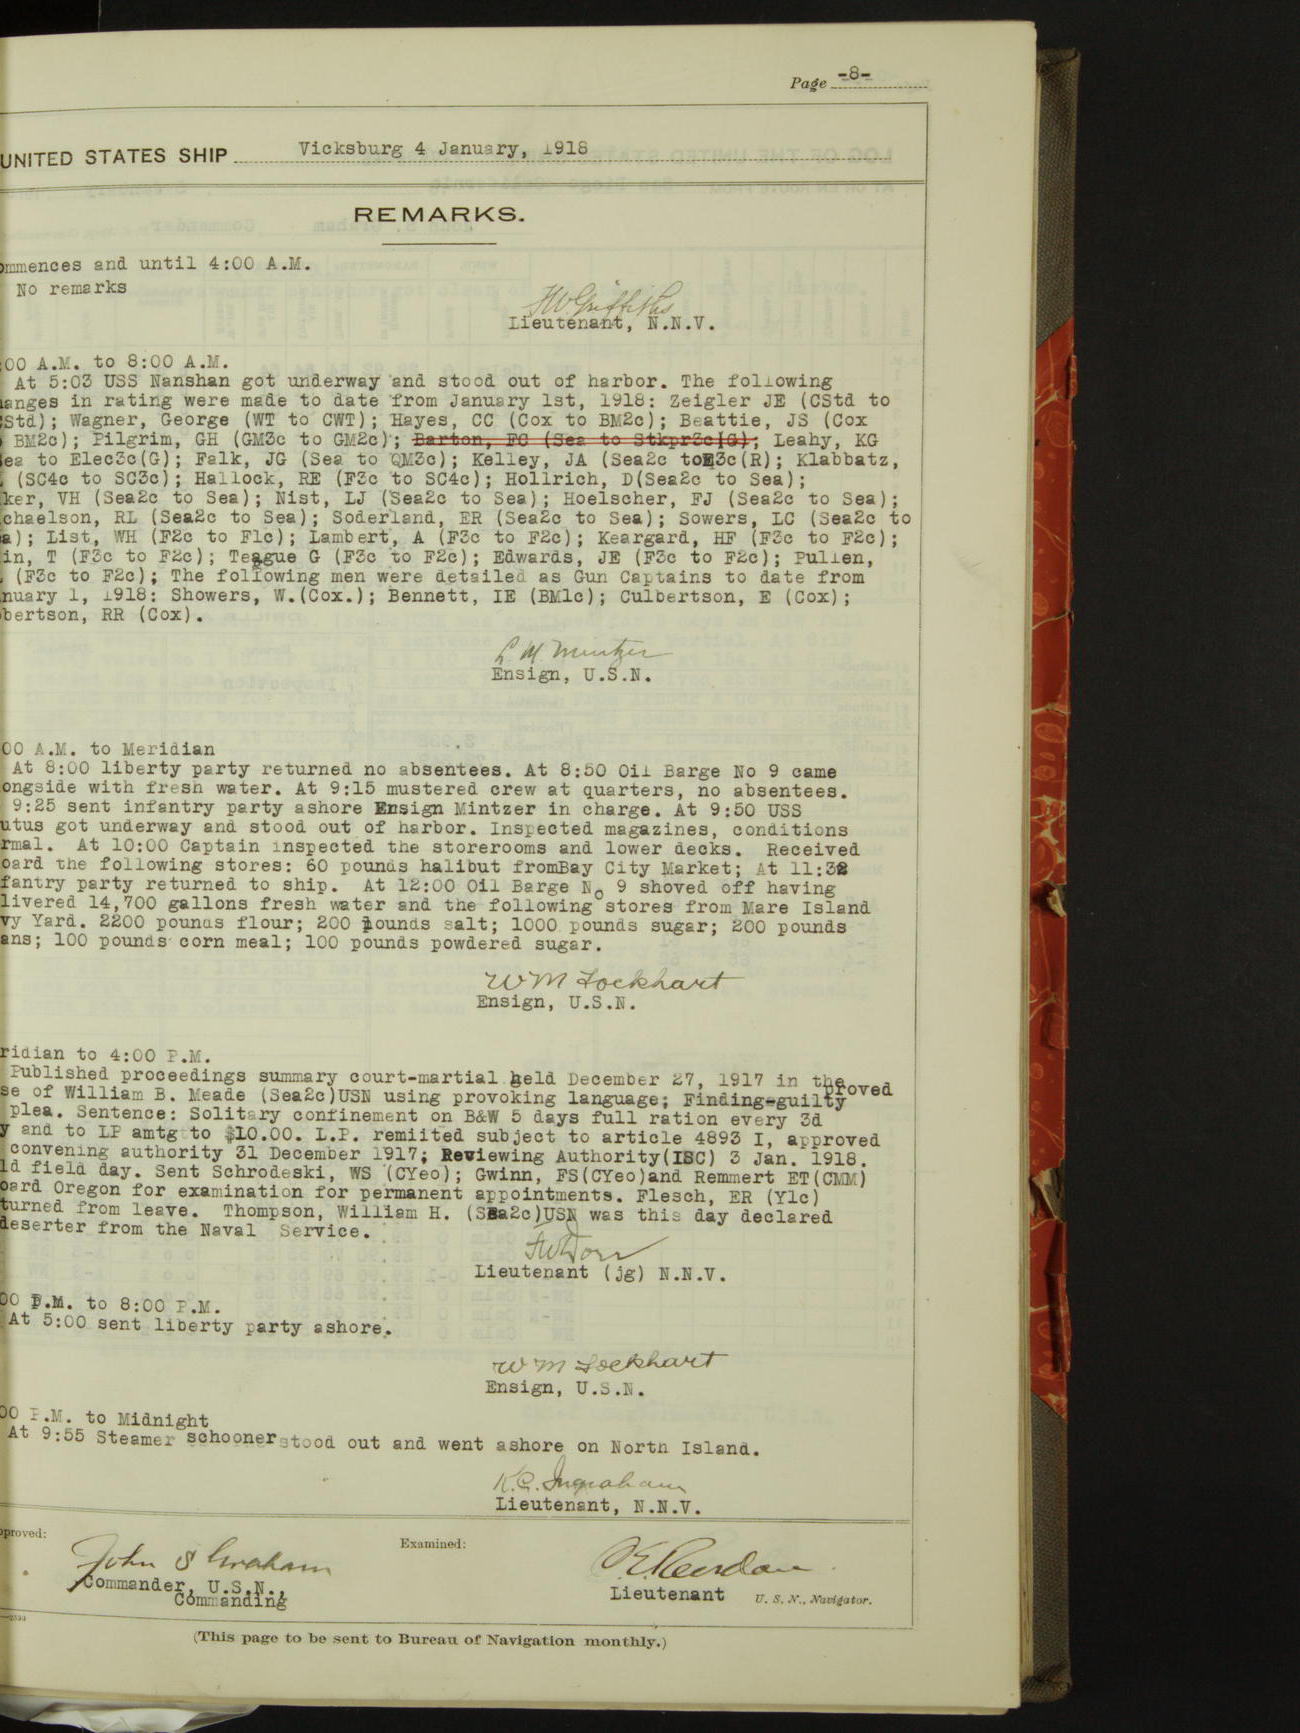 Page -8-
UNITED STATES SHIP Vicksburg 4 January, 1918
REMARKS.
ommences and until 4:00 A.M.
No remarks
HW Griffiths
Lieutenant, N.N.V.
:00 A.M. to 8:00 A.M.
At 5:03 USS Nanshan got underway and stood out of harbor. The following
anges in rating were made to date from January 1st, 1918: Zeigler JE (CStd to
CStd); Wagner, George (WT to CWT); Hayes, CC (Cox to BM2c); Beattie, JS (Cox
BM2c); Pilgrim, GH (GM3c to GM2c); Barton, FC (Sea to Stkpr3c(G); Leahy, KG
ea to Elec3c(G); Falk, JG (Sea to QM3c); Kelley, JA (Sea2c toE3c(R); Klabbatz,
(SC4c to SC3c); Hallock, RE (F3c to SC4c); Hollrich, D(Sea2c to Sea);
ker, VH (Sea2c to Sea); Nist, LJ (Sea2c to Sea); Hoelscher, FJ (Sea2c to Sea);
chaelson, RL (Sea2c to Sea); Soderland, ER (Sea2c to Sea); Sowers, LC (Sea2c to
a); List, WH (F2c to F1c); Lambert, A (F3c to F2c); Keargard, HF (F3c to F2c);
in, T (F3c to F2c); Teague G (F3c to F2c); Edwards, JE (F3c to F2c); Pullen,
(F3c to F2c); The following men were detailed as Gun Captains to date from
nuary 1, 1918: Showers, W.(Cox.); Bennett, IE (BM1c); Culbertson, E (Cox);
bertson, RR (Cox).
L M Mintzer
Ensign, U.S.N.
00 A.M. to Meridian
At 8:00 liberty party returned no absentees. At 8:50 Oil Barge No 9 came
ongside with fresh water. At 9:15 mustered crew at quarters, no absentees.
9:25 sent infantry party ashore Ensign Mintzer in charge. At 9:50 USS
utus got underway and stood out of harbor. Inspected magazines, conditions
rmal. At 10:00 Captain inspected the storerooms and lower decks. Received
oard the following stores: 60 pounds halibut fromBay City Market; At 11:32
fantry party returned to ship. At 12:00 Oil Barge No 9 shoved off having
livered 14,700 gallons fresh water and the following stores from Mare Island
vy Yard. 2200 pounds flour; 200 pounds salt; 1000 pounds sugar; 200 pounds
ans; 100 pounds corn meal; 100 pounds powdered sugar.
W M Lockhart
Ensign, U.S.N.
ridian to 4:00 P.M.
Published proceedings summary court-martial held December 27, 1917 in the
se of William B. Meade (Sea2c)USN using provoking language; Finding-guilty proved
plea. Sentence: Solitary confinement on B&W 5 days full ration every 3d
y and to LP amtg to $10.00. L.P. remiited subject to article 4893 I, approved
convening authority 31 December 1917; Reviewing Authority(ISC) 3 Jan. 1918.
ld field day. Sent Schrodeski, WS (CYeo); Gwinn, FS(CYeo)and Remmert ET(CMM)
oard Oregon for examination for permanent appointments. Flesch, ER (Y1c)
turned from leave. Thompson, William H. (Sea2c)USN was this day declared
deserter from the Naval Service.
FW Dorr
Lieutenant (jg) N.N.V.
00 P.M. to 8:00 P.M.
At 5:00 sent liberty party ashore.
W M Lockhart
Ensign, U.S.N.
00 P.M. to Midnight
At 9:55 Steamer schooner stood out and went ashore on North Island.
K.C. Ingraham
Lieutenant, N.N.V.
pproved:
Examined:
John S Graham
Commander, U.S.N.,
Commanding
Lieutenant U. S. N., Navigator.
(This page to be sent to Bureau of Navigation monthly.)